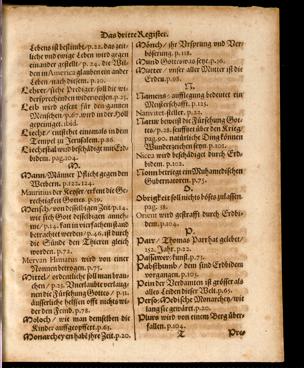 Das dritte Register.
Lebens ist bestimbt/p.22. das zeit-
liche und ewige Leben wird gegen
ein ander gestellt/p.24. die Wil-
den in America glauben ein ander
Leben nach diesem. p.20.
Lehrer/siche Prediger/soll die wi-
dersprechenden
Leib wird gesext
Menschen/p.67. wird in der Höll
gepeiniget. ibid.
Liecht/ entstehet einsmals in dem
Tempel zu Jerusalem. p.86.
Liechtestal wird beschädiget mit Erd-
bidem. pag.104.
M.
Mann/Männer Pflicht gegen den
Weibern. p.122.124.
Mauritius der Keyser/erkent die Ge-
rechtigkeit Gottes. p.29.
Mensch/von desselbigen Zeit/p.14.
wie sich Gott desselbigen anneh-
me/p.14. kan in vierfachem stand
betrachtet werden/p.46. ist durch
die Sünde den Thieren gleich
worden. p.72.
Mervan Humarus wird von einer
Nonnen betrogen. p.75.
Mittel/ordentliche soll man brau-
chen/p.25. Unerlaubte verlaug-
nen die Fürsehung Gottes/p.31.
äusserliche helffen offt nichts wi-
der den Feind. p.78.
Moloch/ wie man demselben die
Kinder auffgeopffert. p.63.
Monarchey en habẽ jhre Zeit. p.20.
Mönch/ jhr Vrsprung und Ver-
böserung. p.118.
Mund Gottes was seye. p.16.
Mutter/ unser aller Mutter ist die
Erden. p.98.
N.
Namens-aufflegung bedeutet ein
Meisterschafft. p.125.
Nativitet-steller. p.102.
Natur beweist die Fürsehung Got-
tes/p.28. seufftzet über den Krieg/
pag.90. natürliche Ding können
Wunderzeichen seyn. p.100.
Nicea wird beschädiget durch Erd-
bidem. p.102.
Nonn betriegt ein Muhamedischen
Gubernatorn. p.75.
O.
Obrigkeit soll nichts böses zulassen/
pag. 18.
Orient wird gestrafft durch Erdbi-
dem. p.104.
P.
Parr/ Thomas Parr hat gelebet/
152. Jahr. p.22.
Passawer-kunst. p.75.
Pabsthumb/ dem sind Erdbidem
vorgangen. p.105.
Pein der Verdamten ist grösser als
alles Leiden dieser Welt. p.65.
Perso-Medische Monarchey/wie
lang sie gewärt. p.20.
Plurs wird von einem Berg über-
fallen. p.104.
T
Pre-